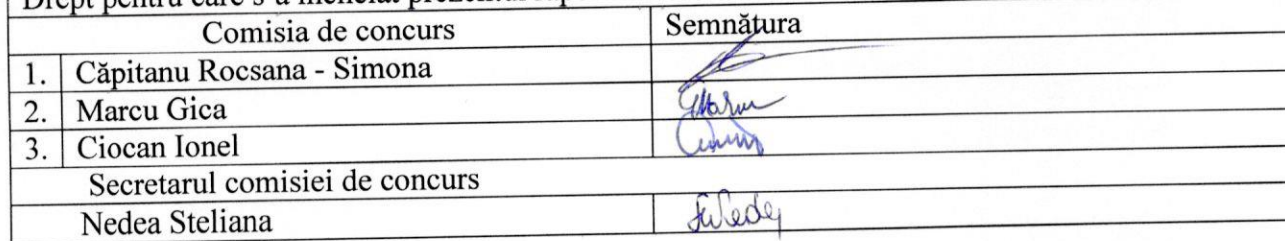 Drept pentru care s-a încheiat prezentul
Comisia de concurs Semnătura
1. Căpitanu Rocsana - Simona
2. Marcu Gica
3. Ciocan Ionel
Secretarul comisiei de concurs
Nedea Steliana